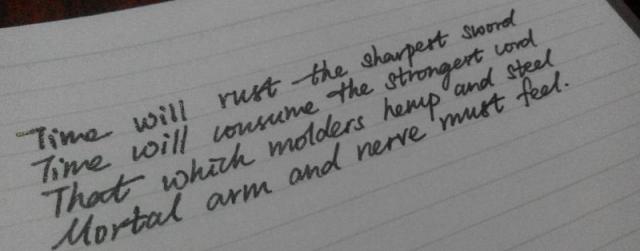 Time will rust the sharpest sword
Time will consume the strongest cord
That which molders hemp and steel
Mortal arm and nerve must feel.